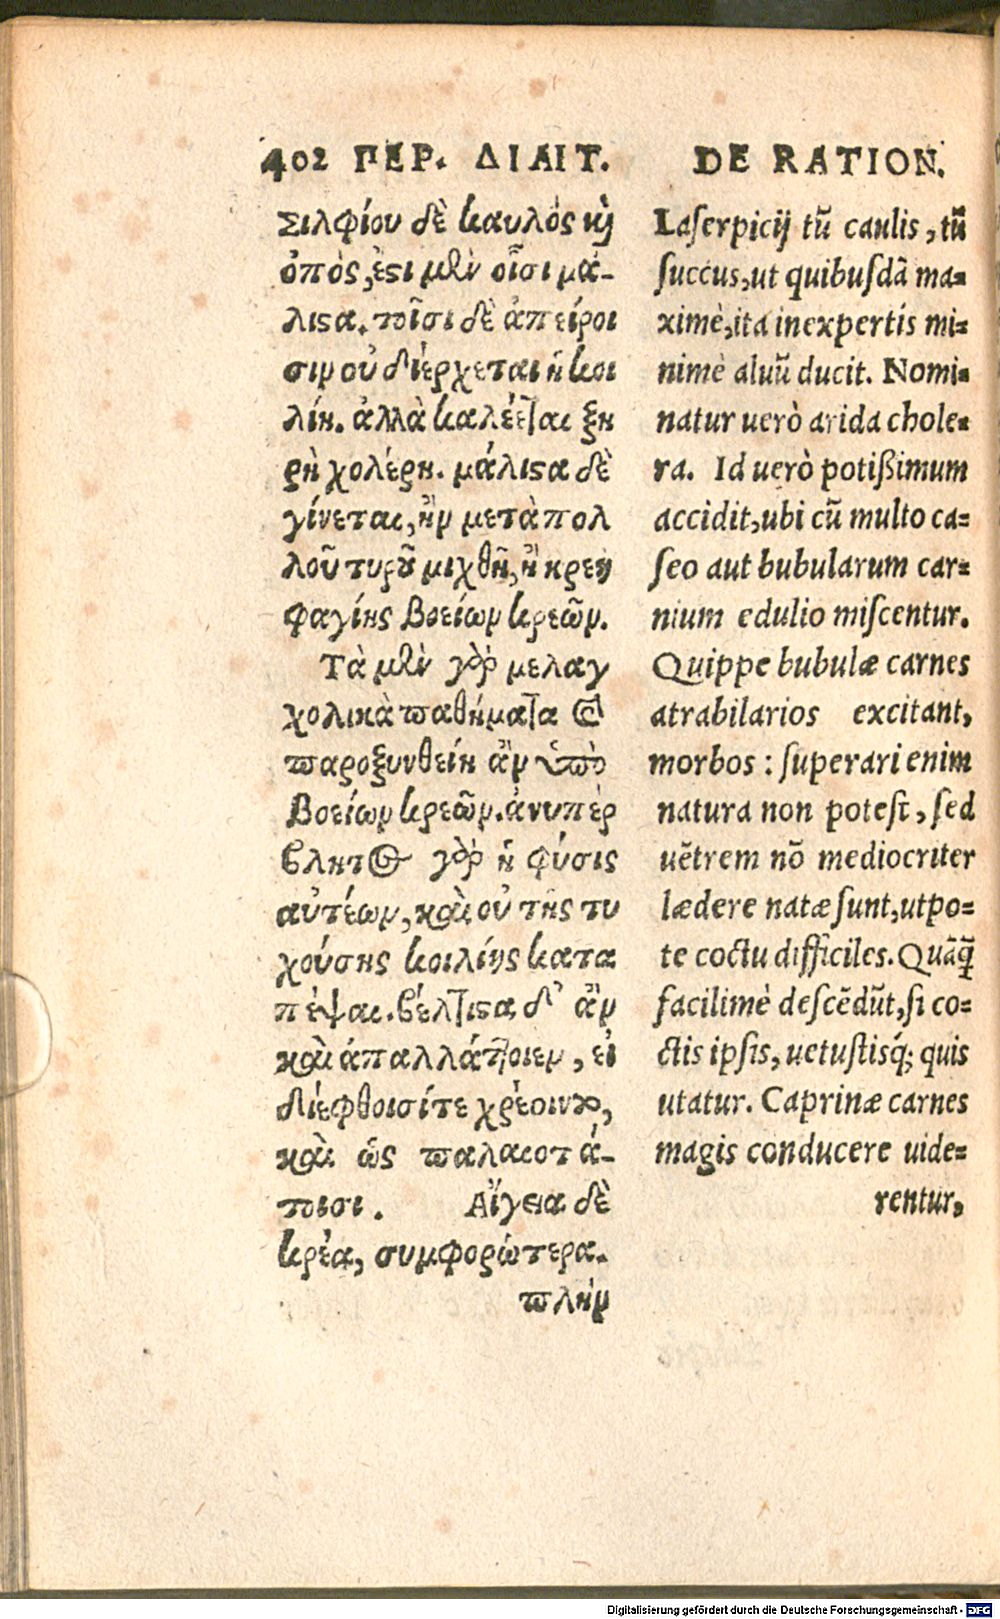 402 ΠΕΡ. ΔΙΑΙΤ.
Σιλφίου δὲ καυλός καὶ
ὀπὸς, ἔςι μὲν οἷσι μά-
λιςα. τοῖσι δὲ ἀπείροι
σιν οὐ διέρχεται ἡ κοι
λίη. ἀλλὰ καλέεται ξη
ρὴ χολέρη. μάλιςα δὲ
γίνεται, ἢν μετὰ πολ
λοῦ τυροῦ μιχθῇ, ἢ κρεη
φαγίης βοείων κρεῶν.
Τὰ μὲν γὸρ μελαγ
χολικὰ παθήματα
παροξυνθείη ἂν ὑπὸ
βοείων κρεῶν. ἀνυπέρ
βλητος γὸρ ἡ φύσις
αὐτέων, καὶ οὐ τῆς τυ
χούσης κοιλίης κατα
πέψαι. βέλτιςα δ' ἂν
καὶ ἀπαλλάττοιεν, εἰ
διέφθοισί τε χρέοιντο,
καὶ ὡς παλαιοτά-
τοισι. Αἴγεια δὲ
κρέα, συμφορώτερα.
πλὴν
DE RATION.
Laſerpicij tũ caulis, tũ
ſuccus, ut quibuſdã ma-
ximè, ita inexpertis mi-
nimè aluũ ducit. Nomi-
natur uerò arida chole-
ra. Id uerò potißimum
accidit, ubi cũ multo ca-
ſeo aut bubularum car-
nium edulio miſcentur.
Quippe bubulæ carnes
atrabilarios excitant,
morbos : ſuperari enim
natura non poteſt, ſed
uẽtrem nõ mediocriter
lædere natæ ſunt, utpo-
te coctu difficiles. Quãq̃
facilimè deſcẽdũt, ſi co-
ctis ipſis, uetuſtisq́; quis
utatur. Caprinæ carnes
magis conducere uide-
rentur,
Digitalisierung gefördert durch die Deutsche Forschungsgemeinschaft - DFG